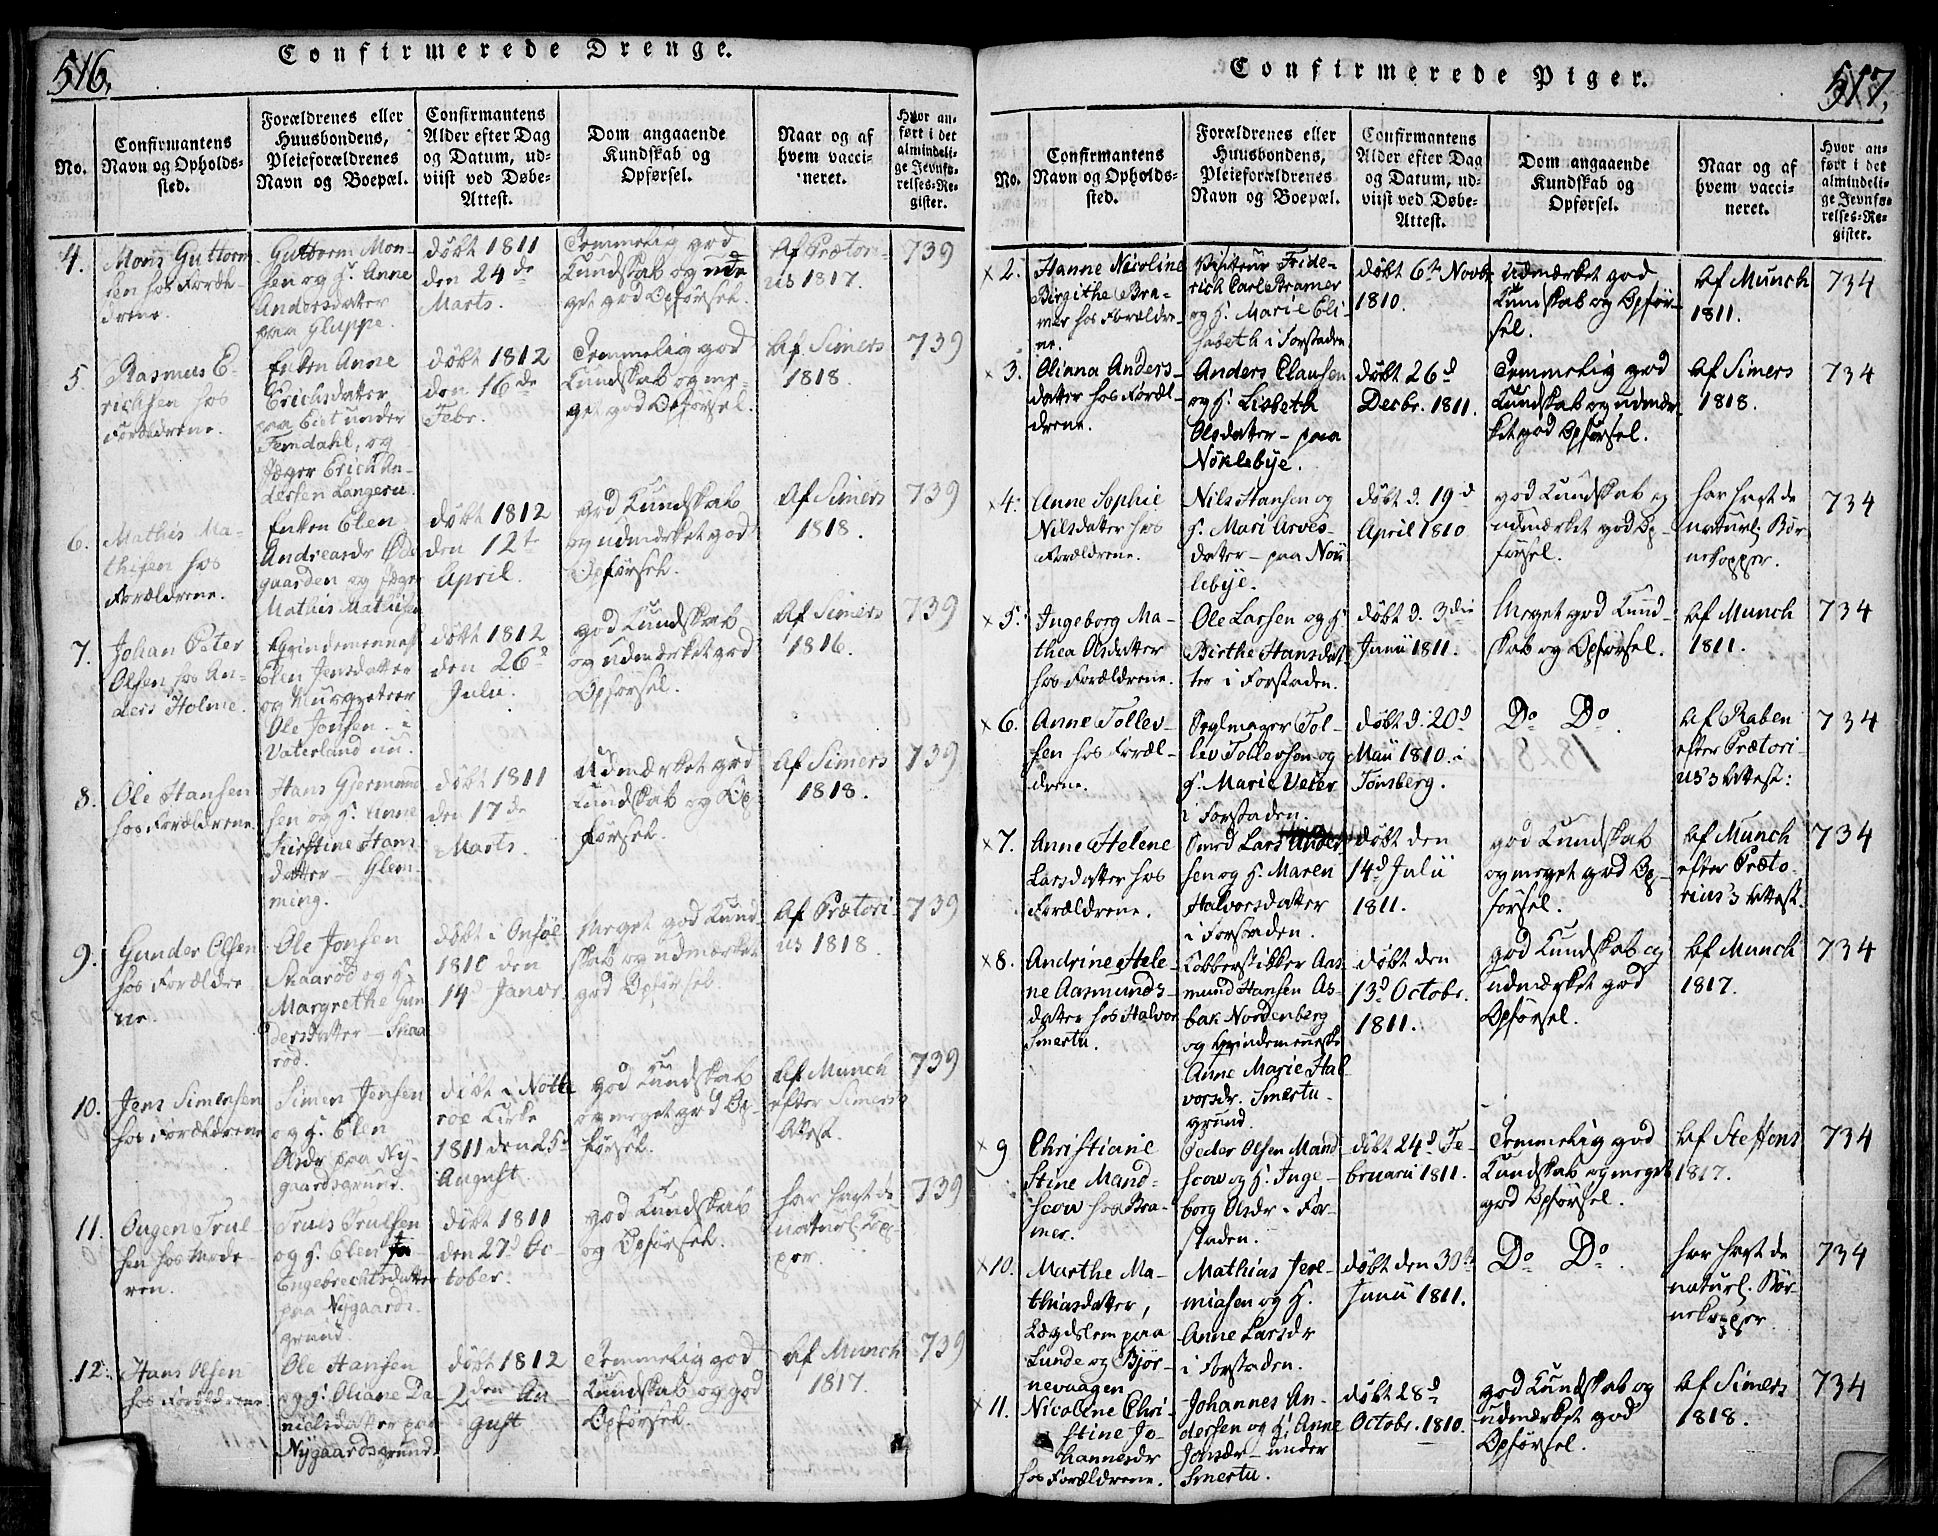 516.
Confirmerede Drenge.
No.
Confirmantens
Navn og Opholds-
sted.
Forældrenes eller
Huusbondens,
Pleieforældrenes
Navn og Boepæl.
Confirmantens
Alder efter Dag
og Datum, ud-
viist ved Døbe-
Attest.
Dom angaaende
Kundskab og
Opførsel.
Naar og af
hvem vacci-
neret.
Hvor an-
ført i det
almindeli-
ge Jevnfø-
relses-Re-
gister.
4.
Mons Guttorm
sen hos Foræl-
drene.
Guttorm Mon-
sen og H. Anne
Andersdatter
paa Gluppe.
døbt 1811
den 24de
Marts.
Temmelig god
Kundskab og me
get god Opførsel.
Af Prætori-
us 1817.
739
5
Rasmus E-
richsen hos
Forældrene.
Enken Anne
Erichsdatter
paa Eiet under
Femdahl, og
Jæger Erich An-
dersen Langeru.
døbt 1812
den 16de
Febr.
Temmelig god
Kundskab og me-
get god Opførsel.
Af Simers
1818.
739
6.
Mathis Ma-
thisen hos
Forældrene.
Enken Elen
Andreasdr
gaarden og Jæger
Mathis Mathisen
døbt 1812
den 12te
April.
god Kundskab
og udmærket god
Opførsel.
Af Simers
1818.
739
7.
Johan Peter
Olsen hos An-
ders Holme.
Qvindemennesk
Elen Jensdatter
og Musqveteer
Ole Jonsen i
Vaterland nu.
døbt 1812
den 26d
Julii.
god Kundskab
og udmærket god
Opførsel.
Af Simers
1816.
739
8.
Ole Hansen
hos Forældrene.
Hans Giermund
sen og H. Anne
Kirstine Hans
datter - Glem-
ming.
døbt 1811
den 17de
Marts.
Udmærket god
Kundskab og Op
førsel.
Af Simers
1818.
739
9.
Gunder Olsen
hos Forældre
ne.
Ole Jonsen
Skaarød og H.
Margrethe Gun
dersdatter - Skaa
rød.
døbt i Onsøe
1810 den
14d Janvr
Meget god Kund-
skab og udmærket
god Opførsel.
Af Prætori
us 1818.
739
10.
Jens Simensen
hos Forældrene
Simen Jensen
og H. Elen
Olsdr paa Ny-
gaardsgrund.
døbt i Nøtte
røe Kirke
1811 den 25d
August
god Kundskab
og meget god Op-
førsel.
Af Munch
efter Simers's
Attest.
739
11.
Ougen Trul-
sen hos Mode-
ren.
Truls Trulsen
og H. Elen
Engebrechtsdatter
paa Nygaards-
grund.
døbt 1811
den 27d Oc-
tober.
god Kundskab
og Opførsel.
har havt de
naturl. Kop
per.
739
12.
Hans Olsen
hos Forældrene
Ole Hansen
og H. Oliane Da
nielsdatter paa
Nygaardsgrund.
døbt 1812
2den Au
gust
Temmelig god
Kundskab og god
Opførsel.
Af Munch
1817.
739
517.
Confirmerede Piger.
No.
Confirmantens
Navn og Opholds-
sted.
Forældrenes eller
Huusbondens,
Pleieforældrenes
Navn og Boepæl.
Confirmantens
Alder efter Dag
og Datum, ud-
viist ved Døbe-
Attest.
Dom angaaende
Kundskab og
Opførsel.
Naar og af
hvem vacci-
neret.
Hvor an-
ført i det
almindeli-
ge Jevnfø-
relses-Re-
gister.
x 2.
Hanne Nicoline
Birgithe Bra-
mer hos Forældre-
ne.
Visiteur Fride-
rich Carl Bramer
og H. Marie Eli-
sabeth i Forstaden
døbt 6te Novbr
1810.
Udmærket god
Kundskab og Opfør-
sel.
Af Munch
1811.
734
x 3.
Oliana Anders-
datter hos Foræl-
drene.
Anders Clausen
og H. Lisbeth
Olsdatter - paa
Nøklebye.
døbt 26d
Decbr. 1811.
Temmelig god
Kundskab og udmær-
ket god Opførsel.
Af Simers
1818.
734
x 4.
Anne Sophie
Nilsdatter hos
Forældrene.
Nils Hansen og
H. Mari Arves-
datter - paa Nøk
lebye.
døbt d. 19d
April 1810
god Kundskab og
udmærket god Op-
førsel.
har havt de
naturl. Bør
nekopper.
734
x 5.
Ingeborg Ma-
thea Olsdatter
hos Forældrene.
Ole Larsen og H
Birthe Hansdat-
ter i Forstaden.
døbt d. 3die
Junii 1811.
Meget god Kund-
skab og Opførsel.
Af Munch
1811.
734
x 6.
Anne Tollev-
sen hos Foræl-
drene.
Seylmager Tol-
lev Tollevsen og
H. Marie Veter
i Forstaden.
døbt d. 20d
Maii 1810 i
Tønsberg.
Do Do.
Af Raben
efter Prætori-
us's Attest:
734
x 7.
Anne Helene
Larsdatter hos
Forældrene.
Smed Lars Ander
sen og H. Maren
Halvorsdatter
i Forstaden.
døbt den
14d Julii
1811.
god Kundskab
og meget god Op-
førsel.
Af Munch
efter Præto-
rius's Attest.
734
x 8.
Andrine Hele-
ne Aasmunds-
datter hos Halvor
Smertu.
Kobberstikker Aas-
mund Hansen As-
bak Nordenberg
og Qvindemenneske
Anne Marie Hal
vorsdr. Smertu-
grund.
døbt den
13d Octobr.
1811.
god Kundskab og
udmærket god
Opførsel.
Af Munch
1817.
734
x 9
Christiane
Stine Mand-
scow hos Bra-
mer.
Peder Olsen Mand
scow og H. Inge-
borg Olsdr i For-
staden.
døbt 24d Fe
bruarii 1811.
Temmelig god
Kundskab og meget
god Opførsel.
Af Steffens
1817.
734
x 10.
Marthe Ma-
thiasdatter,
Lægdslem paa
Lunde og Bjør-
nevaagen
Mathias Jere-
miasen og H.
Anne Larsdr
i Forstaden.
døbt den 30te
Junii 1811.
Do Do.
har havt de
naturl. Bør-
nekopper
734
x 11.
Nicoline Chri-
stine Jo-
hannesdr
hos Forældrene.
Johannes An-
dersen og H. Anne
Jonsdr - under
Smertu.
døbt 28d
Octobr. 1810.
god Kundskab og
udmærket god
Opførsel.
Af Simers
1818.
734